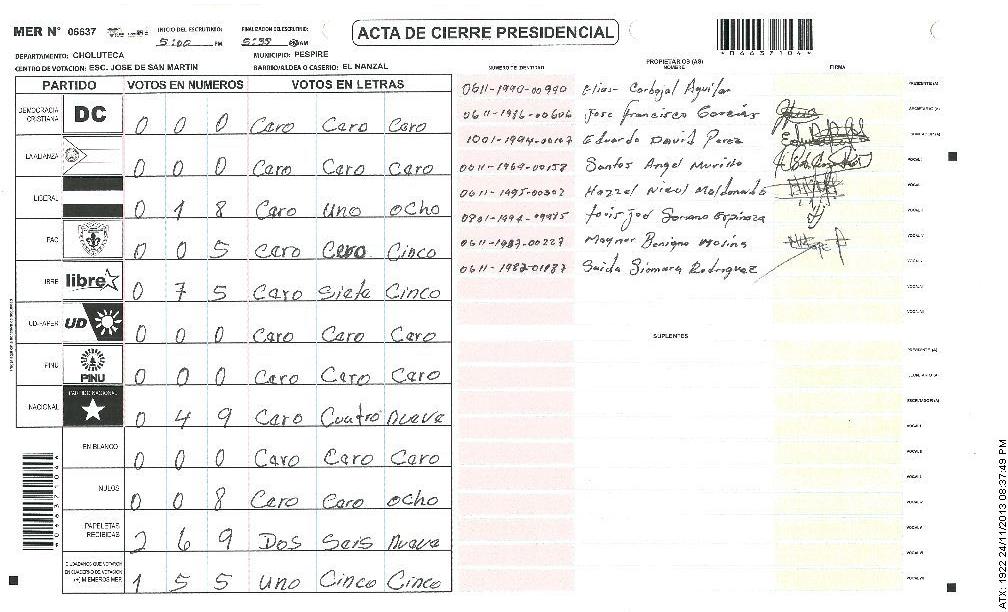 MER N° 06637 INICIO DEL ESCRUTINIO: 5:00 PM FINALIZACION DEL ESCRUTINIO: 5:55 AM
ACTA DE CIERRE PRESIDENCIAL
*06637104*
DEPARTAMENTO: CHOLUTECA MUNICIPIO: PESPIRE
CENTRO DE VOTACION: ESC. JOSE DE SAN MARTIN BARRIO/ALDEA O CASERIO: EL NANZAL
PARTIDO VOTOS EN NUMEROS VOTOS EN LETRAS
DEMOCRACIA CRISTIANA DC 0 0 0 Caro Caro Caro
LA ALIANZA 0 0 0 Caro Caro Caro
LIBERAL 0 1 8 Caro Uno ocho
PAC 0 0 5 Caro Cero Cinco
LIBRE libre 0 7 5 Caro Siete Cinco
UD-FAPER UD 0 0 0 Caro Caro Caro
PINU PINU 0 0 0 Caro Caro Caro
NACIONAL PARTIDO NACIONAL 0 4 9 Caro Cuatro nueve
EN BLANCO 0 0 0 Caro Caro Caro
NULOS 0 0 8 Caro Caro ocho
PAPELETAS RECIBIDAS 2 6 9 Dos Seis nueve
CIUDADANOS QUE VOTARON EN CUADERNO DE VOTACION (+) MIEMBROS MER 1 5 5 uno Cinco Cinco
PROPIETARIOS (AS)
NUMERO DE IDENTIDAD NOMBRE FIRMA
0611-1990-00990 Elias Carbajal Aguilar PRESIDENTE (A)
0611-1986-00606 Jose Francisco SECRETARIO (A)
1001-1994-00107 Eduardo David Perez
0611-1969-00158 Santos Angel Murillo VOCAL I
0611-1995-00302 Hazzel Nicol Maldonado
0801-1994-09985 Soriano Espinoza
0611-1987-00227 Maynor Benigno Molina
0611-1982-01087 Saida Siomara Rodriguez
SUPLENTES
PRESIDENTE (A)
SECRETARIO (A)
ESCRUTADOR (A)
VOCAL I
VOCAL II
*06637104*
ATX: 1922 24/11/2013 08:37:49 PM